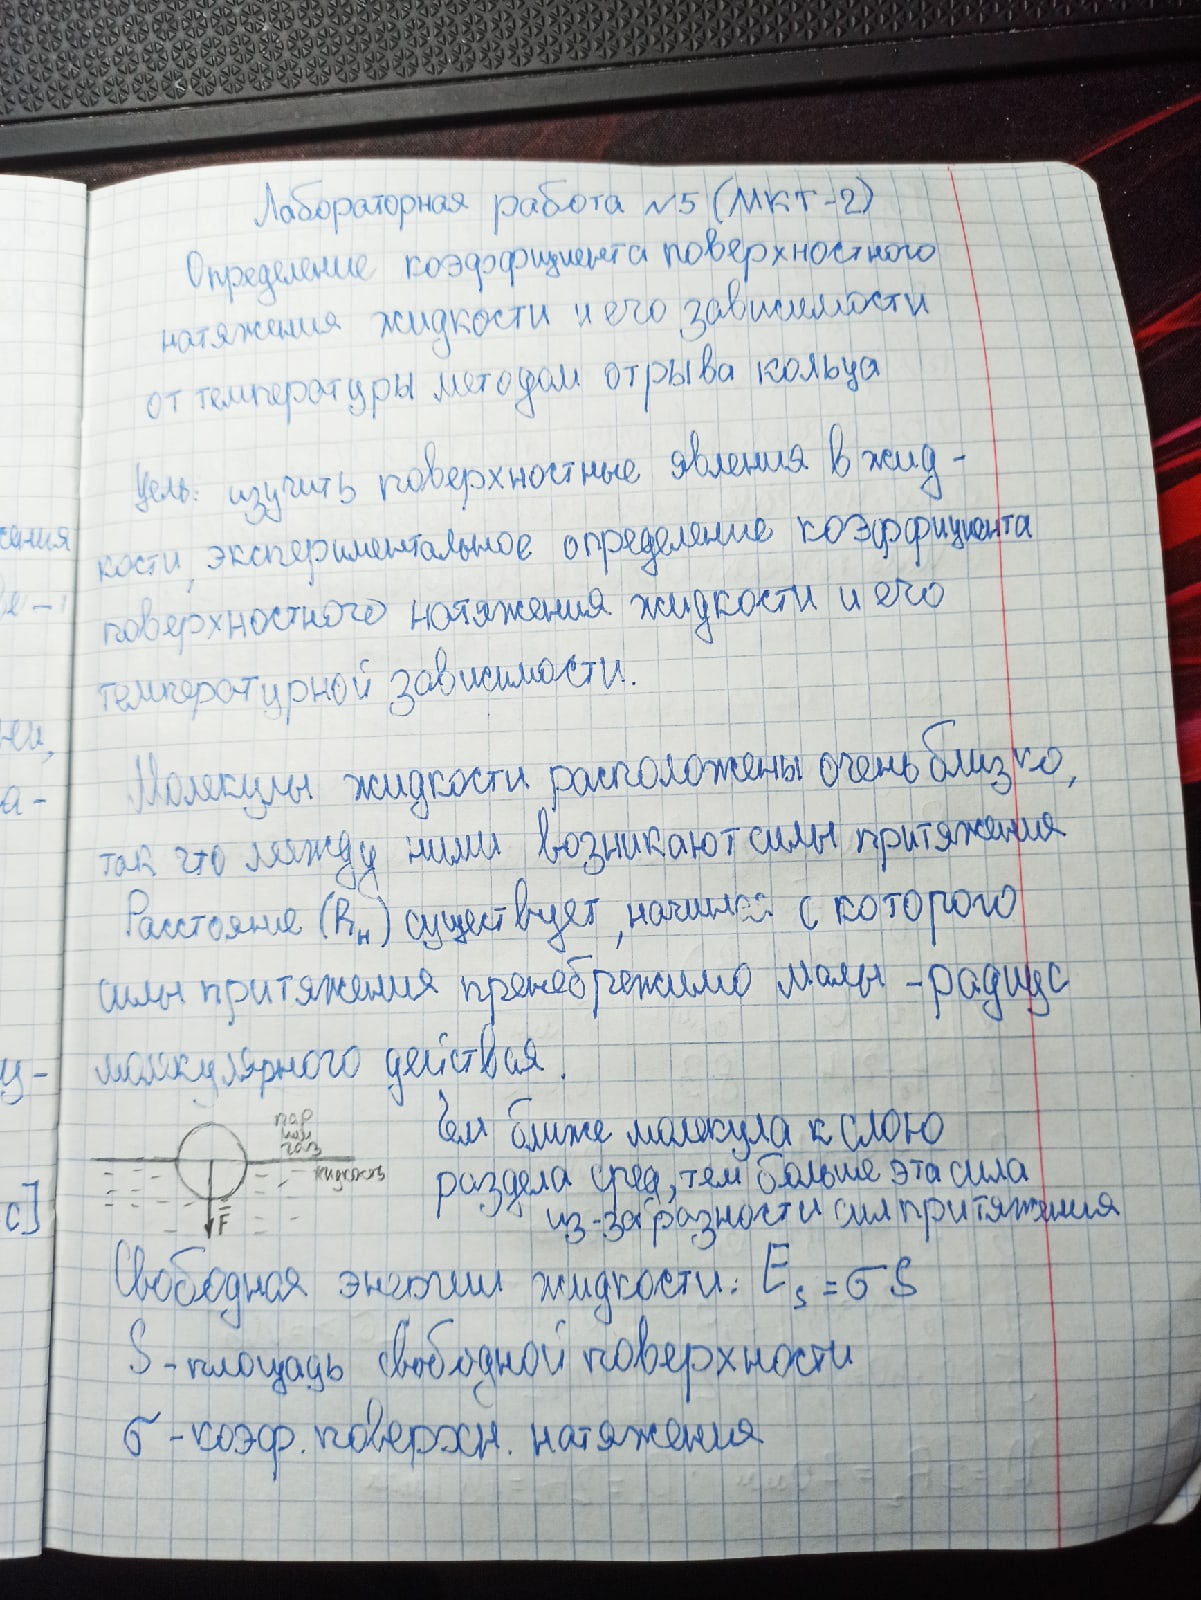 Лабораторная работа №5 (МКТ-2)
Определение коэффициента поверхностного
натяжения жидкости и его зависимости
от температуры методом отрыва кольца
Цель: изучить поверхностные явления в жид-
кости, экспериментальное определение коэффициента
поверхностного натяжения жидкости и его
температурной зависимости.
Молекулы жидкости расположены очень близко,
так что между ними возникают силы притяжения
Расстояние (Rн) существует, начиная с которого
силы притяжения пренебрежимо малы - радиус
молекулярного действия.
пар
или
газ
жидкость
F
Чем ближе молекула к слою
раздела сред, тем больше эта сила
из-за разности сил притяжения
Свободная энергии жидкости: Es = σ S
S - площадь свободной поверхности
σ - коэф. поверхн. натяжения
сания
ни,
а-
у-
с]